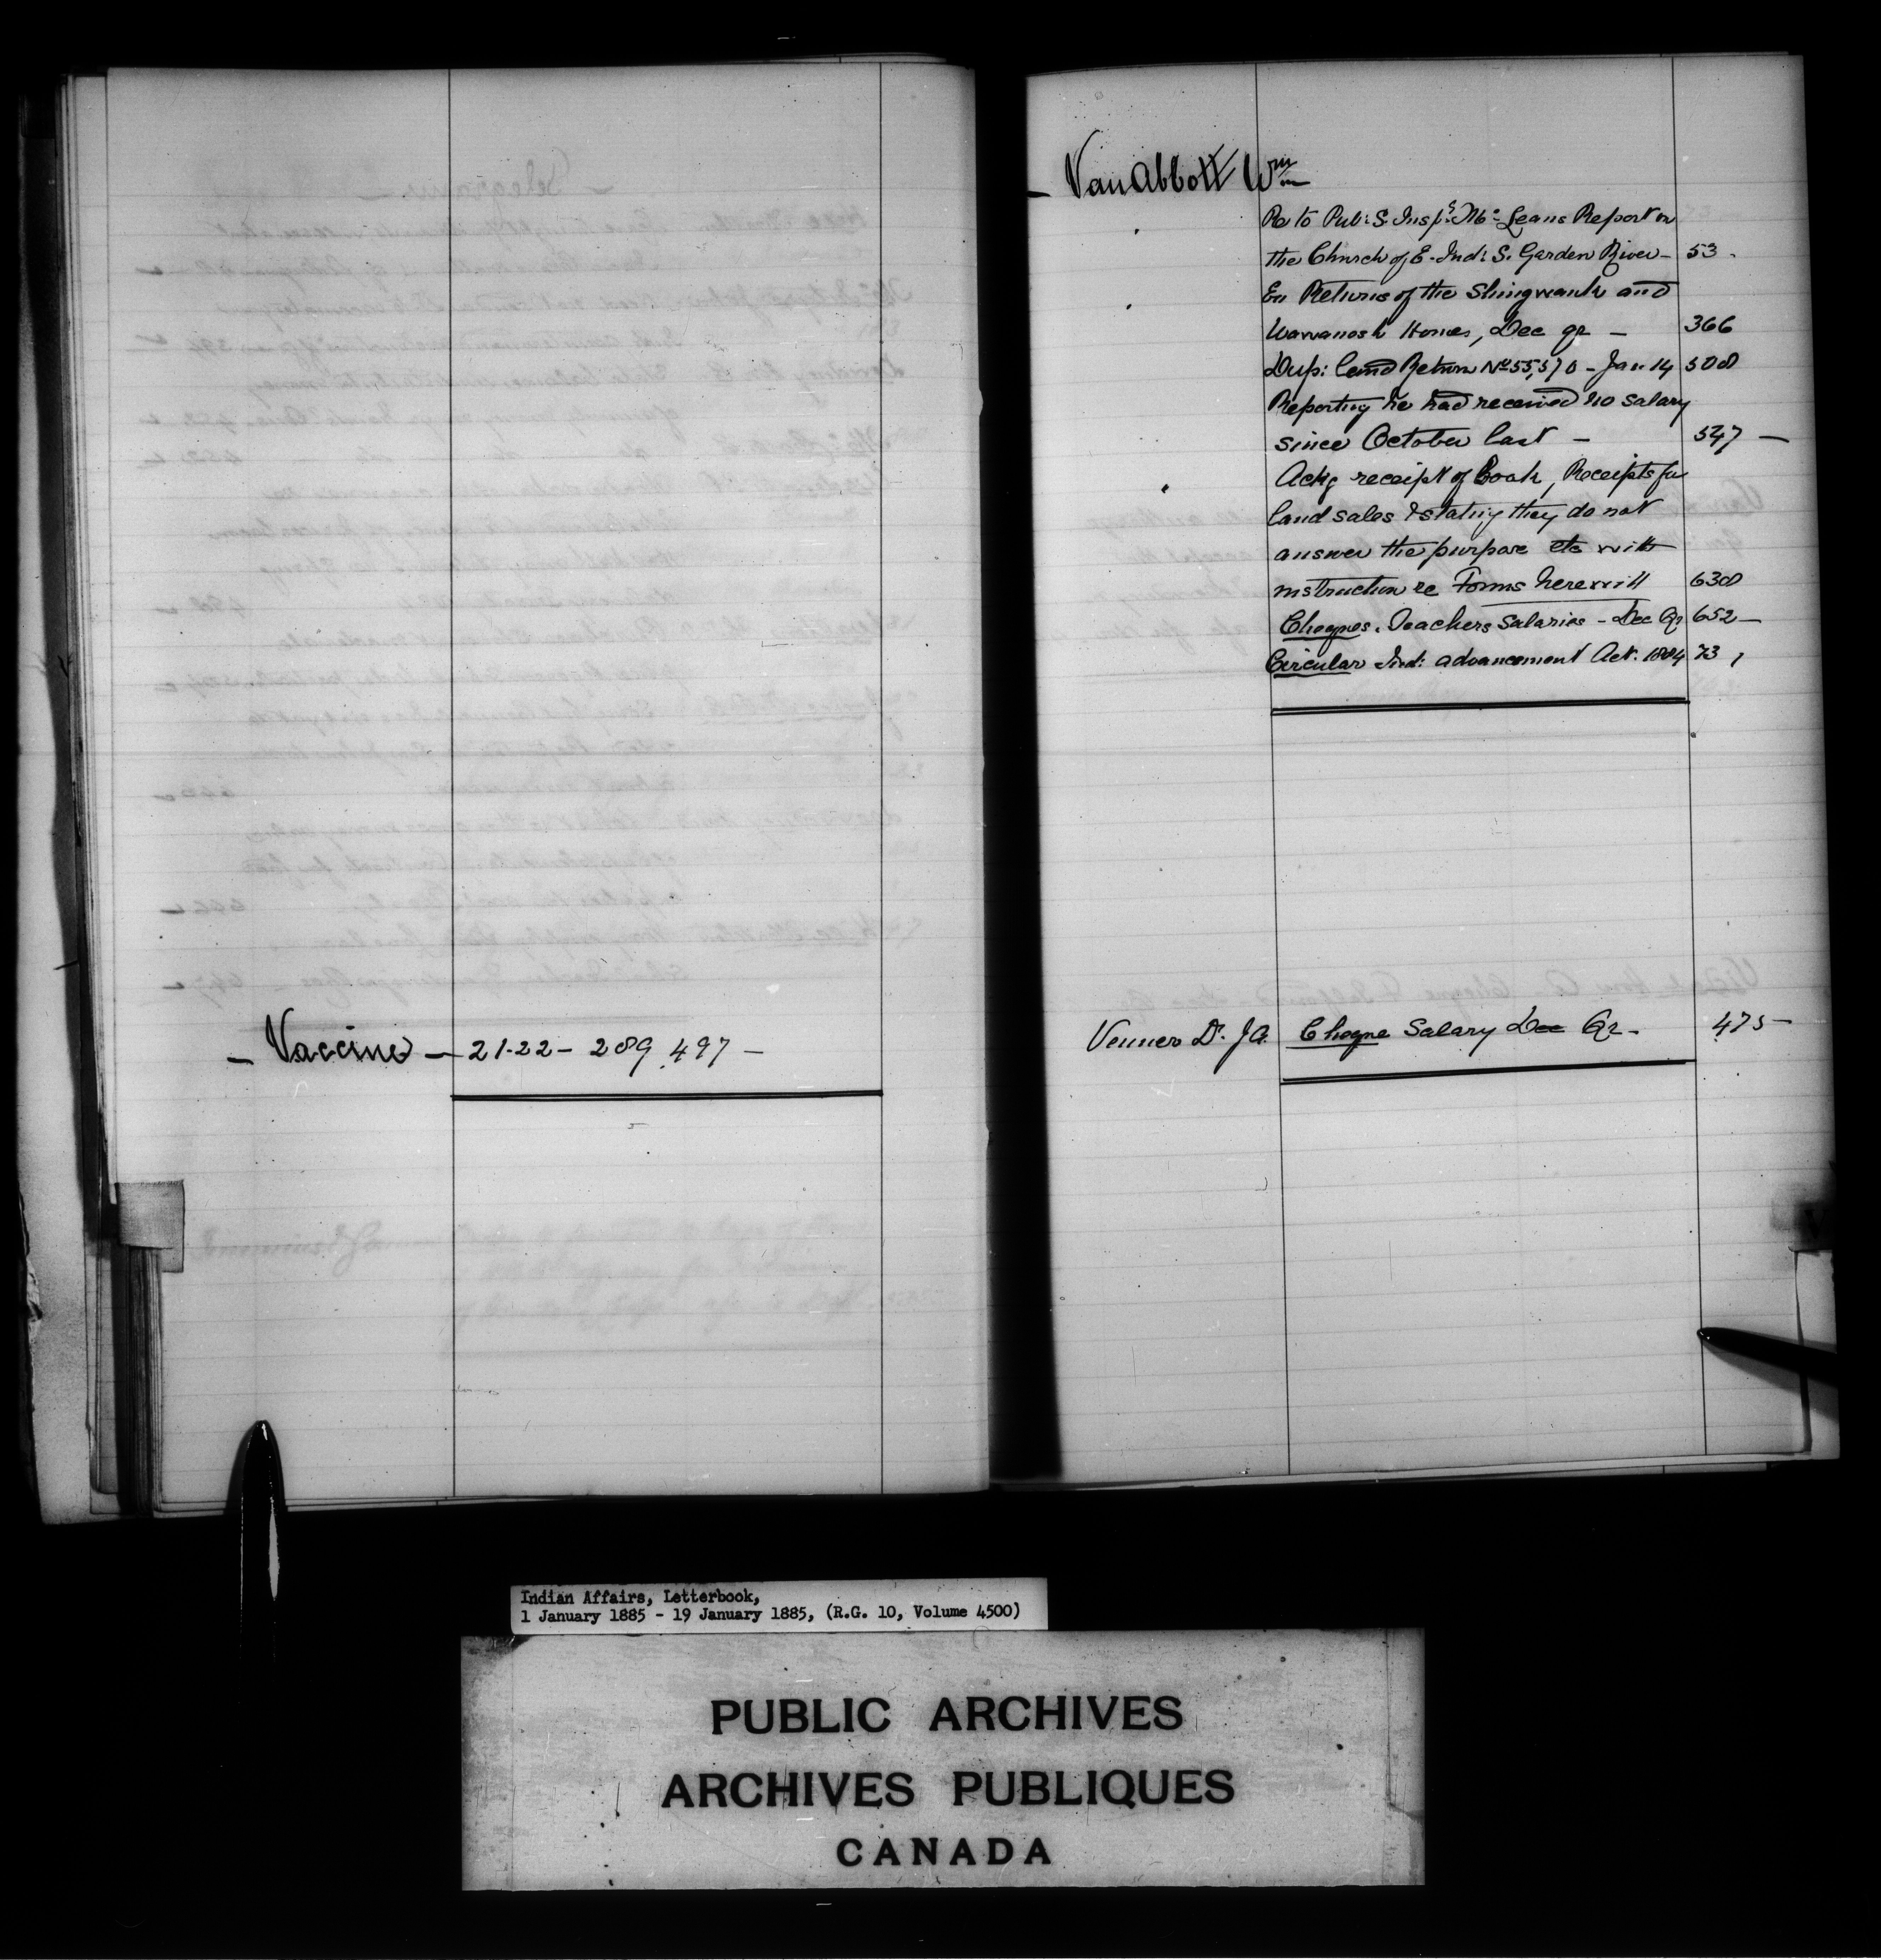 — Vaccine — 21-22 - 289, 497 —
— Van Abbott Wm
Re to Pub: S. Insp:s Mc Leans Report on
the Church of E. Ind: S. Garden River - 53 -
En Returns of the Shingwauk and
Wawanosh Homes, Dec qr - 366
Dup: land Return No 55,570 - Jan 14 508
Reporting he had received no salary
since October last - 547 —
Ackg receipt of Book, Receipts for
land sales & stating they do not
answer the purpose etc with
instruction re Forms herewith 638
Cheques. Teachers Salaries - Dec Qr 652 —
Circular Ind: advancement Act. 1884 73
Venner Dr. J A. Cheque Salary Dec Qr - 475 —
Indian Affairs, Letterbook,
1 January 1885 - 19 January 1885, (R.G. 10, Volume 4500)
PUBLIC ARCHIVES
ARCHIVES PUBLIQUES
CANADA